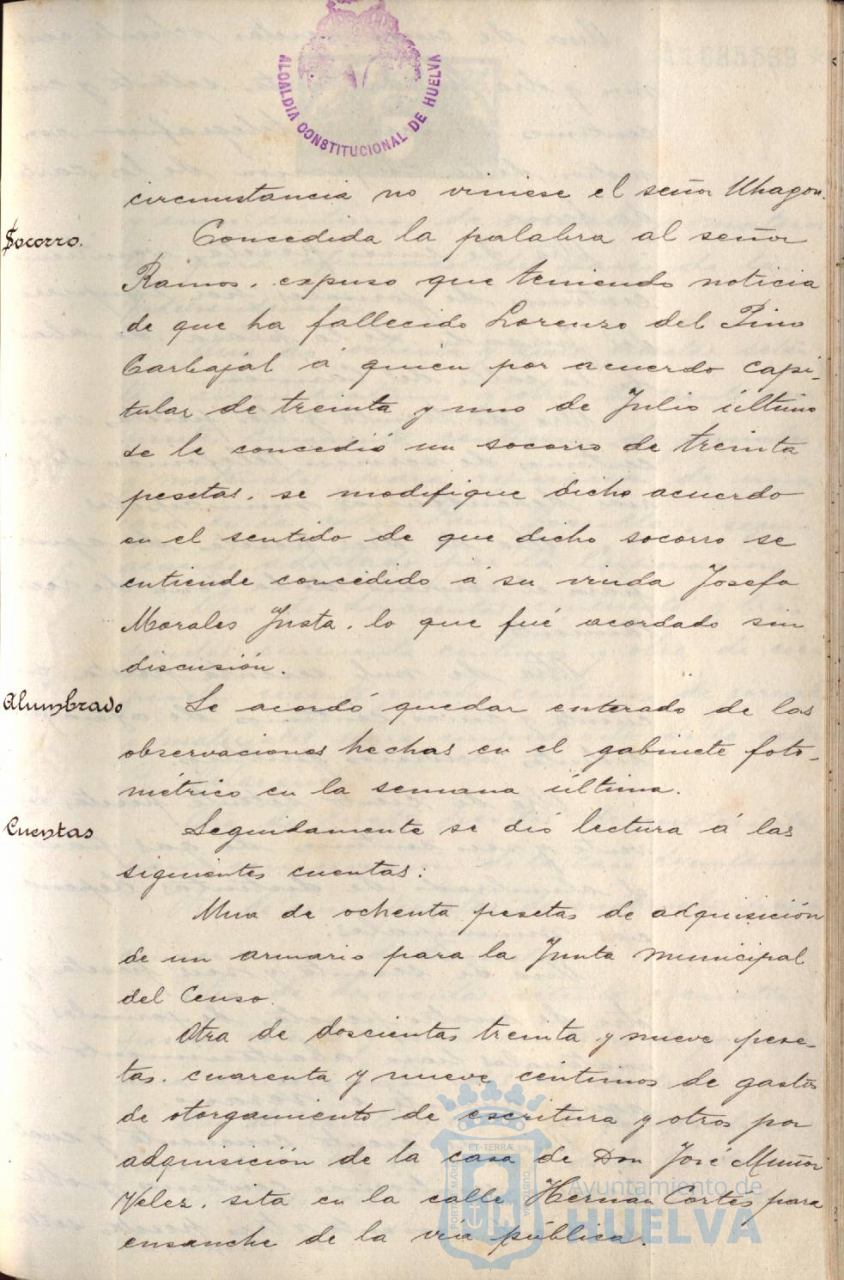 ALCALDIA CONSTITUCIONAL DE HUELVA
circunstancia no viniese el señor Uhagon.
Socorro.
Concedida la palabra al señor
Ramos, expuso que teniendo noticia
de que ha fallecido Lorenzo del Pino
Carbajal á quien por acuerdo capi-
tular de treinta y uno de Julio último
se le concedió un socorro de treinta
pesetas, se modifique dicho acuerdo
en el sentido de que dicho socorro se
entiende concedido á su viuda Josefa
Morales Justa, lo que fué acordado sin
discusión.
Alumbrado
Se acordó quedar enterado de las
observaciones hechas en el gabinete foto-
métrico en la semana última.
Cuentas
Seguidamente se dió lectura á las
siguientes cuentas:
Una de ochenta pesetas de adquisición
de un armario para la Junta municipal
del Censo.
Otra de doscientas treinta y nueve pese-
tas, cuarenta y nueve céntimos de gastos
de otorgamiento de escritura y otros por
adquisición de la casa de Don José Muñoz
Velez, sita en la calle Hernan Cortés para
ensanche de la vía pública.
Ayuntamiento de
HUELVA